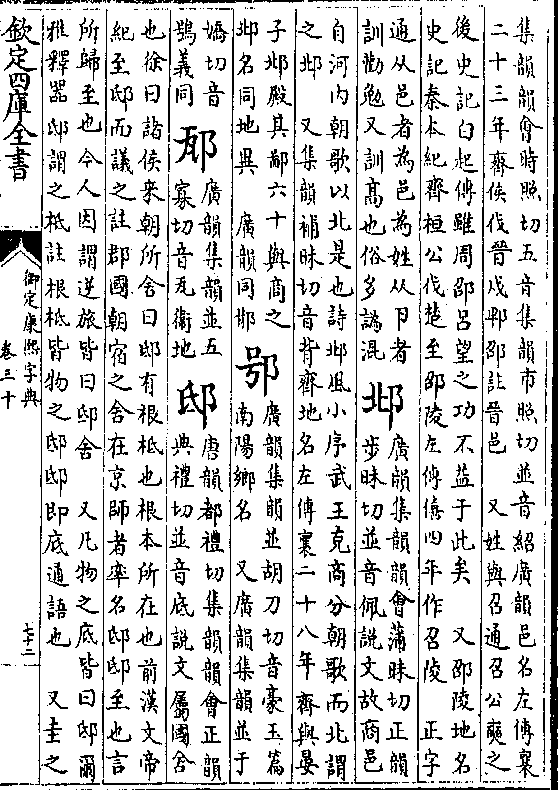 集韻韻會時照切五音集韻市照切並音紹廣韻邑名左傳襄
二十三年齊侯伐晉戍郫邵註晉邑　又姓與召通召公奭之
後史記白起傳雖周邵呂望之功不益于此矣　又邵陵地名
史記秦本紀齊桓公伐楚至邵陵左傳僖四年作召陵　正字
通从邑者為邑為姓从卪者
訓勸勉又訓高也俗多譌混
邶
廣韻集韻韻會蒲昧切正韻
步昧切並音佩說文故商邑
自河內朝歌以北是也詩邶風小序武王克商分朝歌而北謂
之邶　又集韻補昧切音背齊地名左傳襄二十八年齊與晏
子邶殿其鄙六十與商之
邶名同地異　廣韻同
廣韻集韻並胡刀切音豪玉篇
南陽鄉名　又廣韻集韻並于
嬌切音
鴞義同
邷
廣韻集韻並五
寡切音瓦衛地
邸
唐韻都禮切集韻韻會正韻
典禮切並音底說文屬國舍
也徐曰諸侯來朝所舍曰邸有根柢也根本所在也前漢文帝
紀至邸而議之註郡國朝宿之舍在京師者率名邸邸至也言
所歸至也今人因謂逆旅皆曰邸舍　又凡物之底皆曰邸爾
雅釋器邸謂之柢註根柢皆物之邸邸即底通語也　又圭之
欽定四庫全書
御定康熙字典
卷三十
七十二